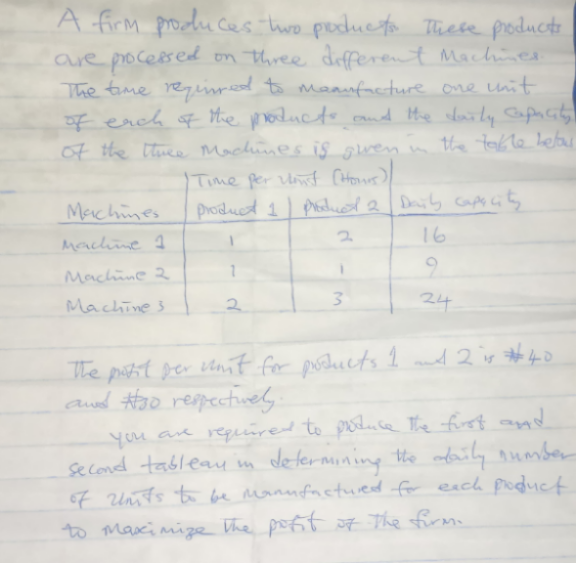 A firm produces two products These products
are processed on three different Machines.
The time required to manufacture one unit
of each of the products and the daily capacity
of the three Machines is given in the table below
Time per unit (Hours)
Machines Product 1 Product 2 Daily capacity
Machine 1 1 2 16
Machine 2 1 1 9
Machine 3 2 3 24
The profit per unit for products 1 and 2 is ₦40
and ₦30 respectively.
You are required to produce the first and
second tableau in determining the daily number
of units to be manufactured for each product
to maximize the profit of the firm.